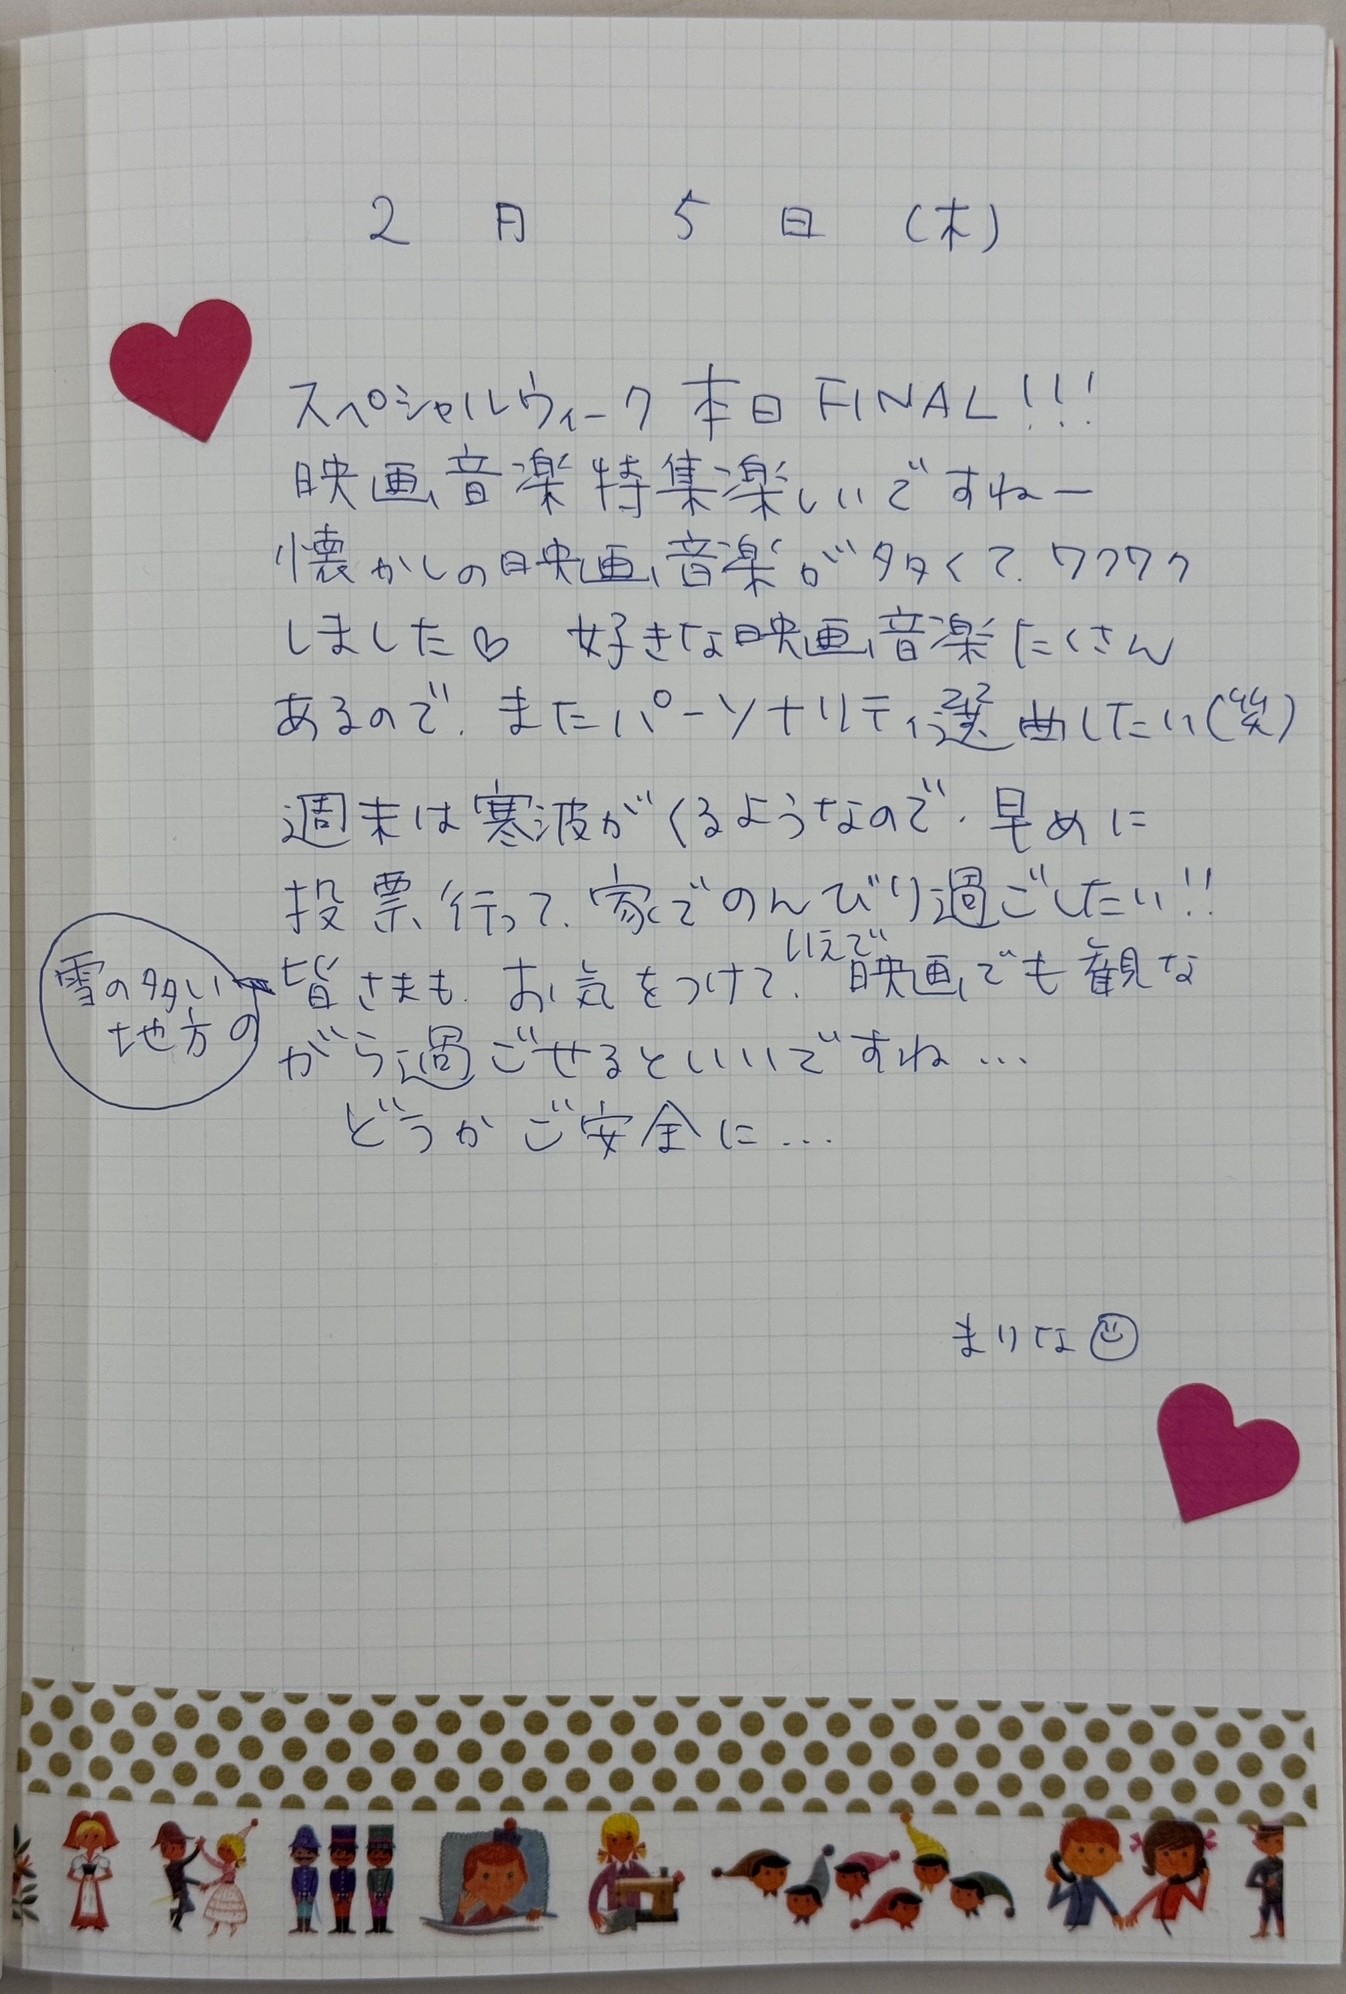 2月 5日 (木)
スペシャルウィーク 本日 FINAL!!!
映画音楽特集楽しいですねー
懐かしの映画音楽が多くて、ワクワク
しました♡ 好きな映画音楽たくさん
あるので、またパーソナリティ選曲したい(笑)
週末は寒波がくるようなので、早めに
投票行って、家でのんびり過ごしたい!!
雪の多い
地方の
皆さまも、お気をつけて、いえで映画でも観な
がら過ごせるといいですね…
どうかご安全に…
まりな☺